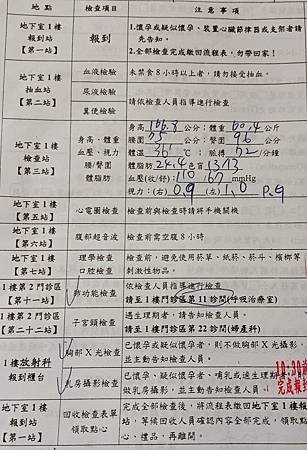 地點 檢查項目 注意事項
地下室1樓
報到站
【第一站】
報到
1.懷孕或疑似懷孕、裝置心臟節律器或支架者請
先告知。
2.全部檢查完成繳回流程表,勿帶回家!
地下室1樓
抽血站
【第二站】
血液檢驗
未禁食8小時以上者,請勿接受抽血。
尿液檢驗
糞便檢驗
請依檢查人員指導進行檢查
地下室1樓
檢查站
【第三站】
身高、體重
血壓、視力
腰/臀圍
體脂肪
身高 166.8 公分;體重 60.4 公斤
腰圍 公分;臀圍 96 公分
體溫 36.1 ℃;脈搏 72 /分鐘
體脂肪 24.4
血壓(收/舒) 110 / 67 mmHg
視力:(右) 0.9 (左) 1.0
地下室1樓
【第五站】
心電圖檢查
檢查前與檢查時請將手機關機
地下室1樓
【第六站】
腹部超音波
檢查前需空腹8小時
地下室1樓
【第七站】
理學檢查
口腔檢查
檢查前,避免使用菸草、紙菸、菸斗、檳榔等
刺激性物品。
1樓第2門診區
【第十一站】
肺功能檢查
依檢查人員指導進行檢查
請至1樓門診區第11診間(呼吸治療室)
1樓第2門診區
【第二十二站】
子宮頸檢查
遇生理期者,請告知檢查人員。
請至1樓門診區第22診間(婦產科)
1樓放射科
報到櫃台
胸部X光檢查
已懷孕或疑似懷孕者,則不做胸部X光檢查,
並主動告知檢查人員。
乳房攝影檢查
已懷孕、疑似懷孕者、哺乳或遇生理期
做乳房攝影,並主動告知檢查人員。
10:30前
完成報到
地下室1樓
報到站
【第一站】
回收檢查表單
領取點心
完成全部檢查後,將流程表繳回地下室1樓報
站,等候回收人員確認內容全部完成,領取點
心、禮品,再離開。